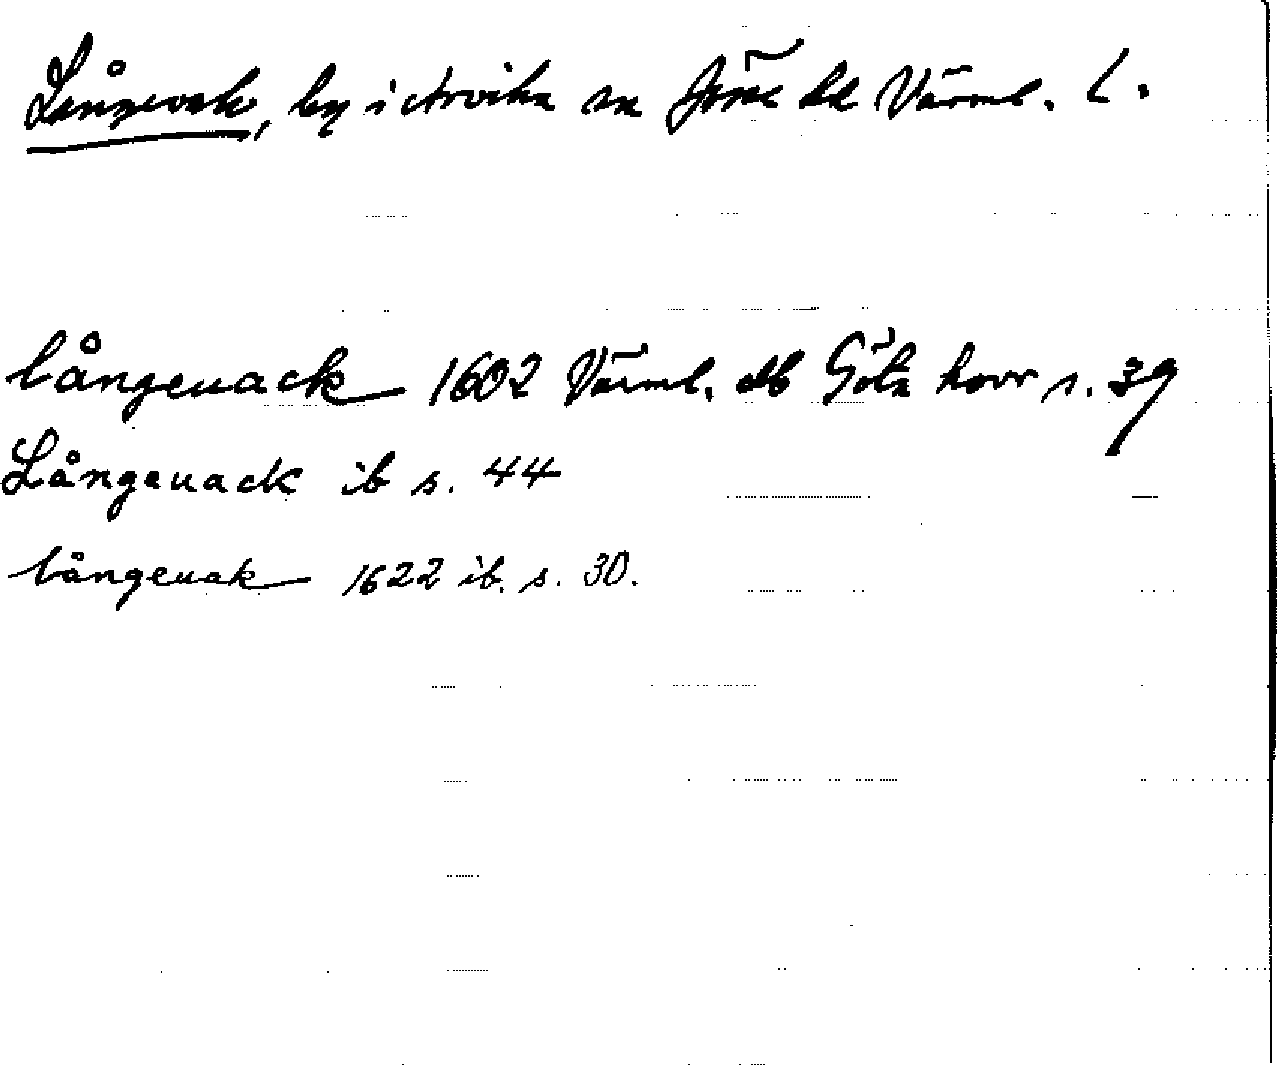 Långevak, by i Arvika sn Jösse hd Värml. L.
långeuack 1602 Värml. db Göta hovr s. 39
Långeuack ib s. 44
långeuak 1622 ib. s. 30.